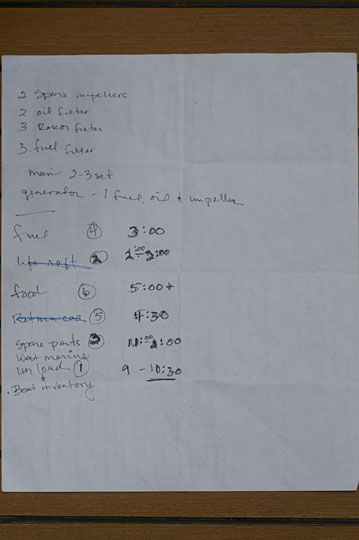 2 Spare impellers
2 oil filter
3 Rakor filter
3 fuel filter
main 2-3 set
generator - 1 fuel, oil & impeller
fuel 4 3:00
life raft 2 2:00
food 6 5:00+
Return car 5 4:30
Spare parts 3
West marine
un/oad 1 9 - 10:30
. Boat inventory